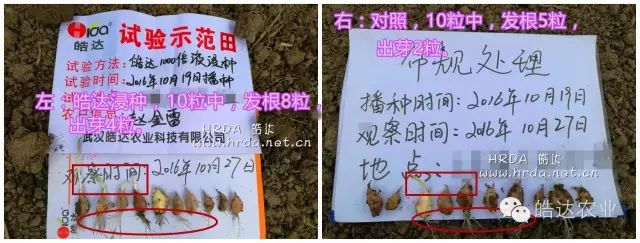 Hrda
皓达
试验示范田
试验方法：皓达1000倍液浸种
试验时间：2016年10月19日播种
左：皓达浸种，10粒中，发根8粒，
出芽4粒。
武汉皓达农业科技有限公司
HRDA 皓达
www.hrda.net.cn
观察时间：2016年10月27日
Hrda
皓达
右：对照，10粒中，发根5粒，
出芽2粒。
常规处理
播种时间：2016年10月19日
观察时间：2016年10月27日
地点：
HRDA 皓达
www.hrda.net.cn
皓达农业